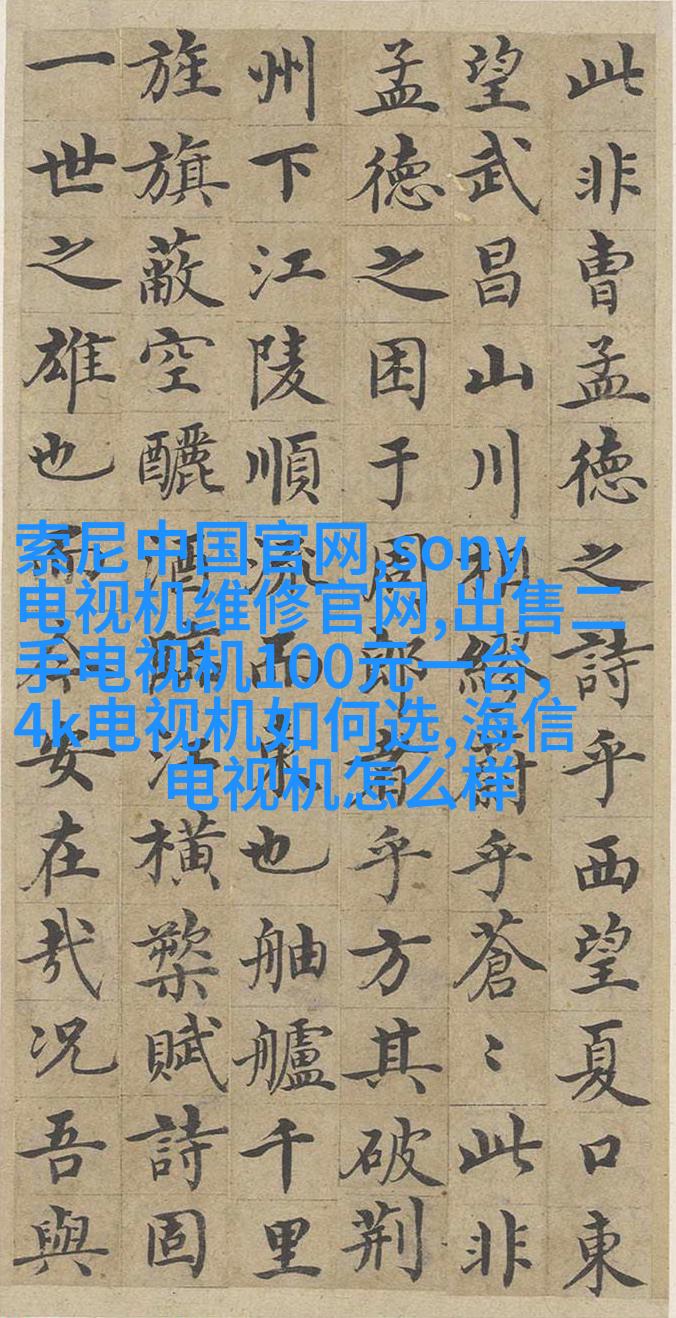 此非曹孟德之詩乎西望夏口東
望武昌山川相繆乎蒼〻此非
孟德之困于周郎者乎方其破荆
州下江陵順流而東也舳艫千里
旌旗蔽空釃酒臨江橫槊賦詩固
一世之雄也而今安在哉况吾與
索尼中国官网,sony
电视机维修官网,出售二
手电视机100元一台,
4k电视机如何选,海信
电视机怎么样